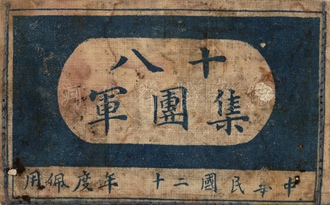 十八
集團軍
中華民國二十 年度佩用